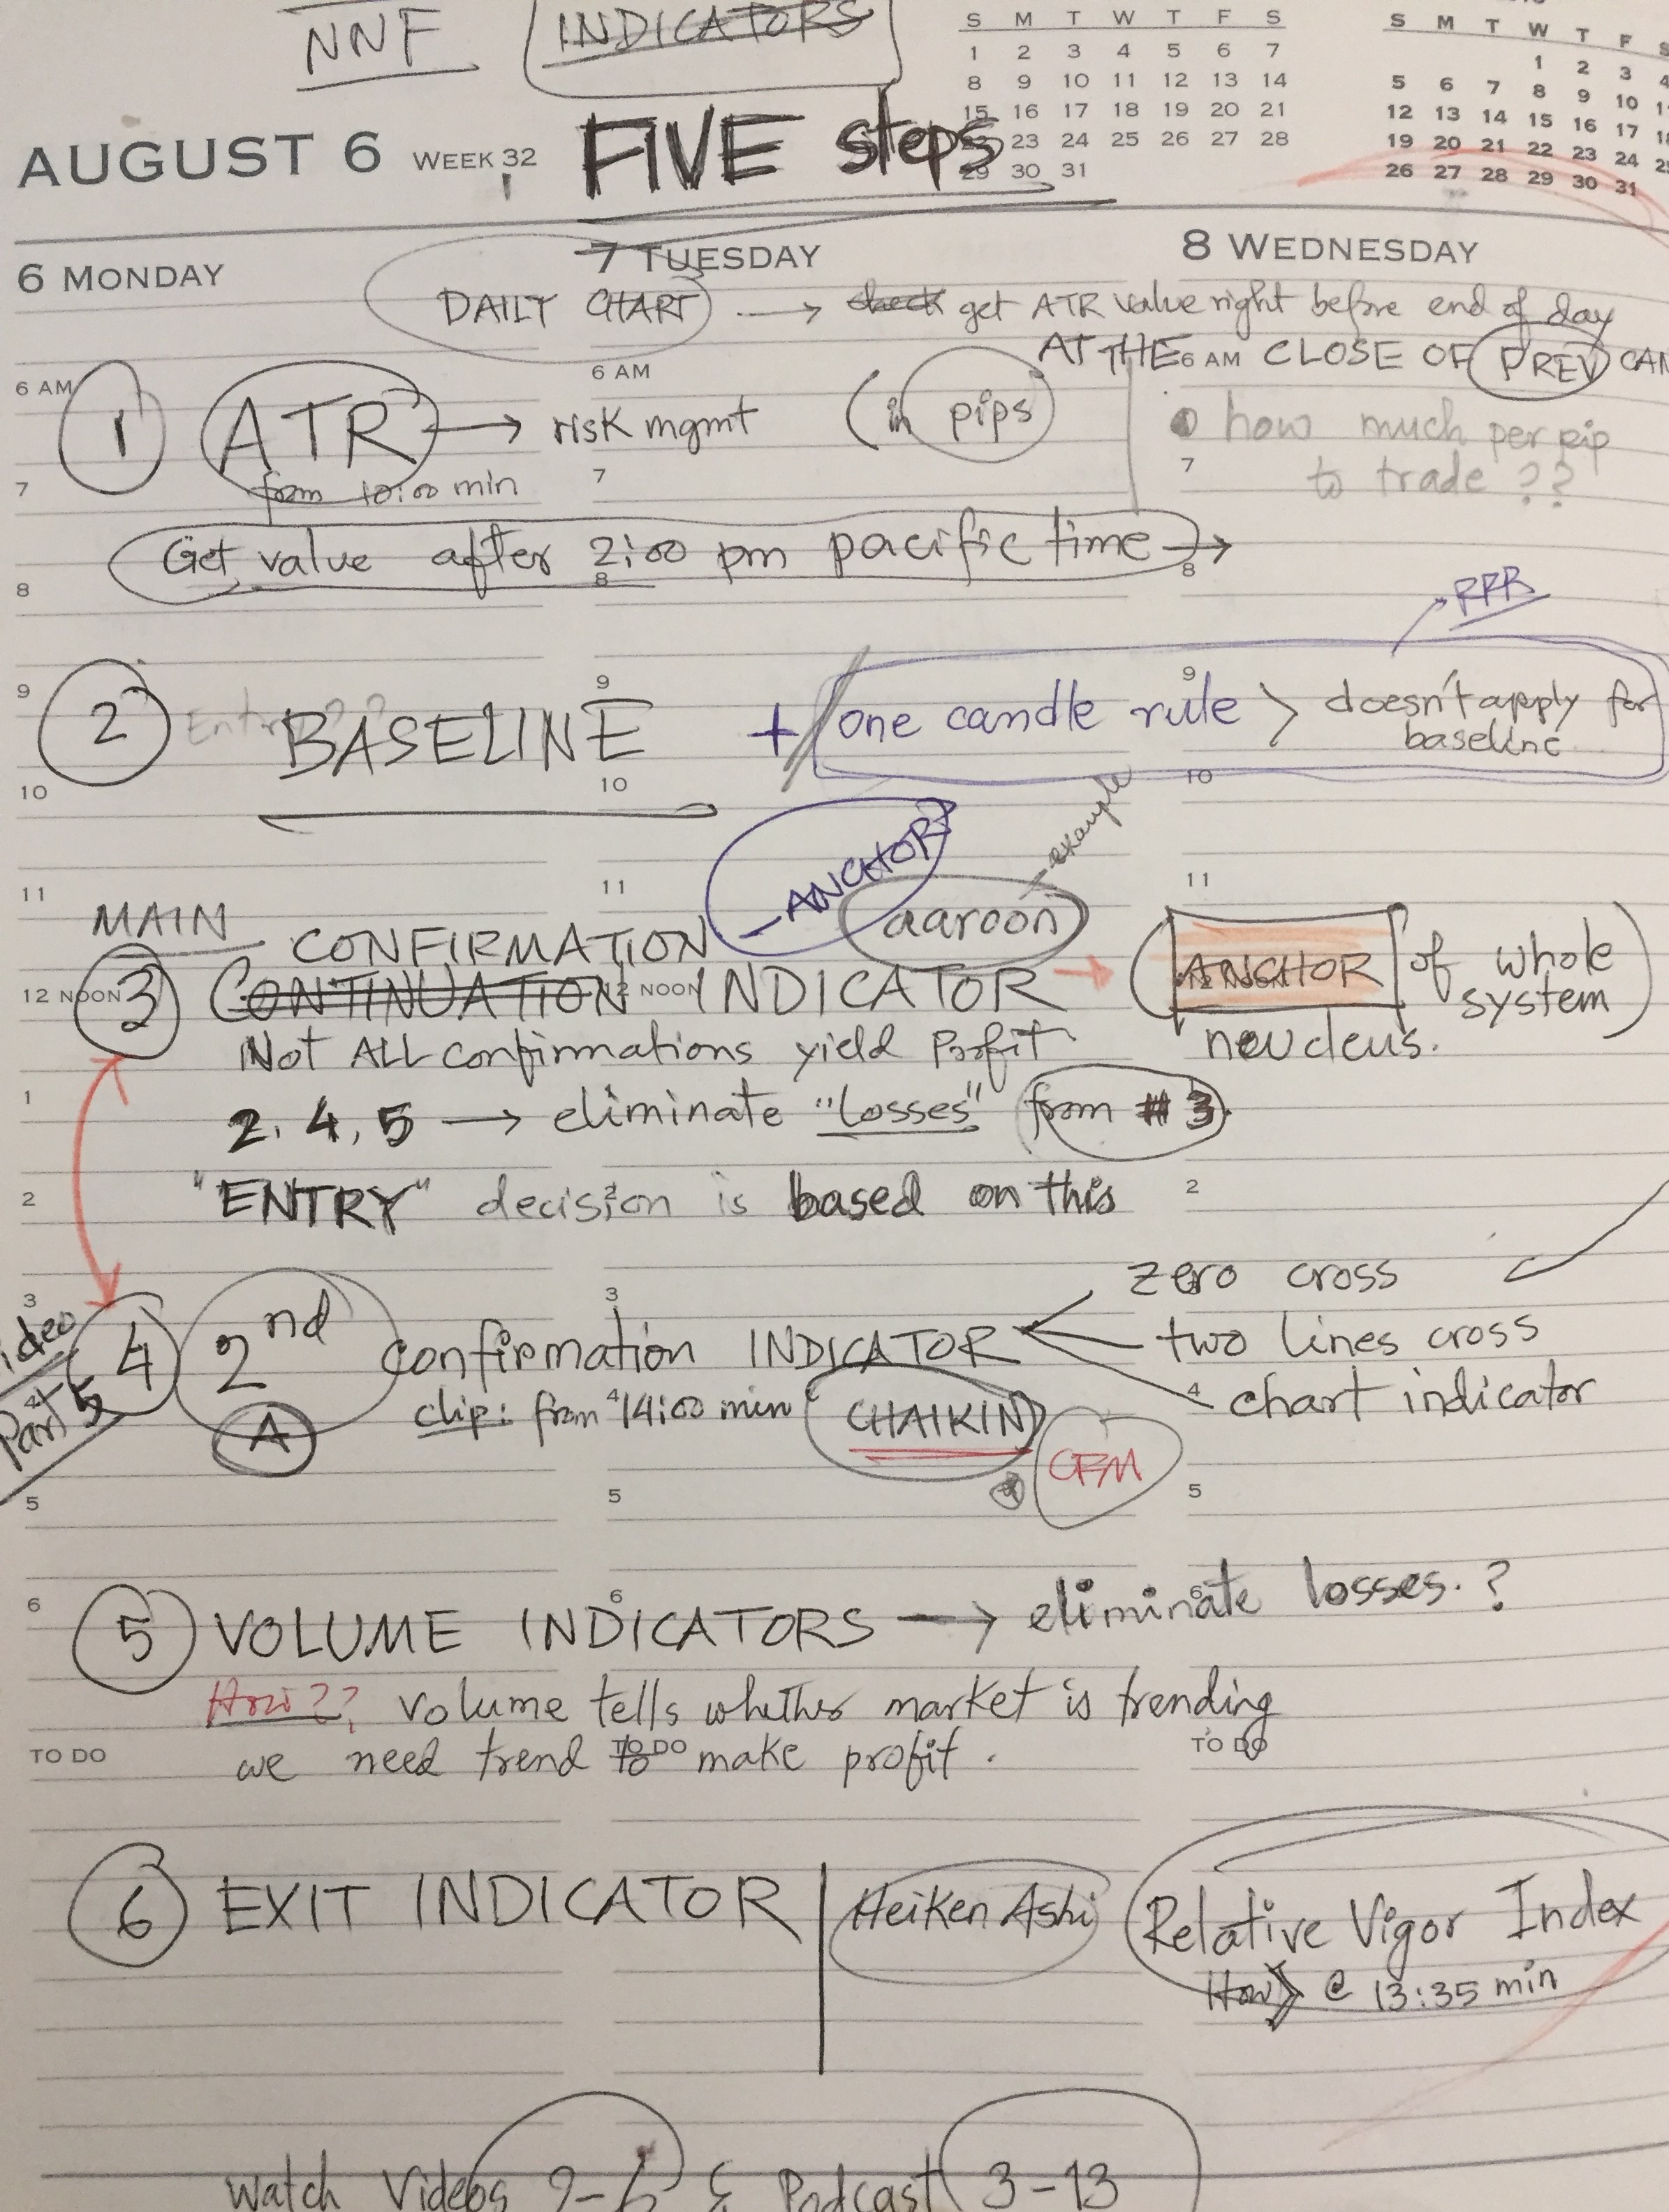 NNF INDICATORS
S M T W T F S
1 2 3 4 5 6 7
8 9 10 11 12 13 14
15 16 17 18 19 20 21
22 23 24 25 26 27 28
29 30 31
S M T W T F S
1 2 3 4
5 6 7 8 9 10
12 13 14 15 16 17 18
19 20 21 22 23 24 25
26 27 28 29 30 31
AUGUST 6 WEEK 32 FIVE steps
6 MONDAY 7 TUESDAY 8 WEDNESDAY
DAILY CHART → check get ATR value right before end of day
AT THE CLOSE OF PREV CAN
6 AM 6 AM 6 AM
1 ATR → risk mgmt (in pips)
how much per pip
to trade ??
from 10:00 min
7 7 7
Get value after 2:00 pm pacific time →
8 8 8
RRR
9 9 9
2 Entry ?? BASELINE + one candle rule > doesn't apply for
baseline
10 10 10
- ANCHOR aaroon - example
11 11 11
MAIN CONFIRMATION
12 NOON 12 NOON
3 CONTINUATION INDICATOR → (ANCHOR of whole
system)
neucleus.
Not ALL confirmations yield Profit
1
2, 4, 5 → eliminate "losses" from # 3.
2 2 2
"ENTRY" decision is based on this
3 3
zero cross
4 2nd confirmation INDICATOR two lines cross
chart indicator
Part 5
4 4 4
A clip: from 14:00 min CHAIKIN
CFM
5 5 5
6 6 6
5 VOLUME INDICATORS → eliminate losses. ?
How?? volume tells whether market is trending
TO DO TO DO TO DO
we need trend to make profit.
6 EXIT INDICATOR Heiken Ashi Relative Vigor Index
How @ 13:35 min
Watch Videos 2-6 & Podcast 3-13